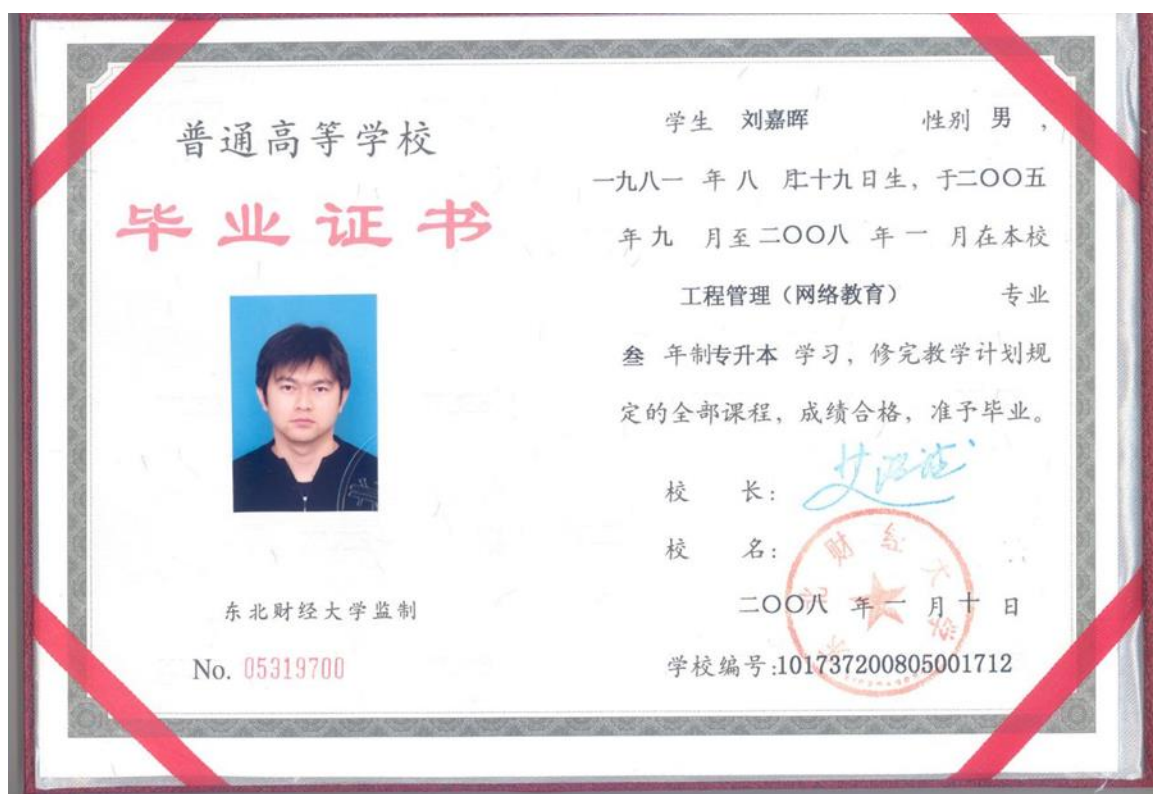 普通高等学校
毕业证书
东北财经大学监制
No. 05319700
学生 刘嘉晖 性别 男 ,
一九八一 年 八 月二十九日生, 于二〇〇五
年 九 月至二〇〇八 年 一 月在本校
工程管理（网络教育） 专业
叁 年制专升本 学习, 修完教学计划规
定的全部课程, 成绩合格, 准予毕业。
校 长:
校 名:
东北财经大学
二〇〇八 年 一 月 十 日
学校编号:101737200805001712